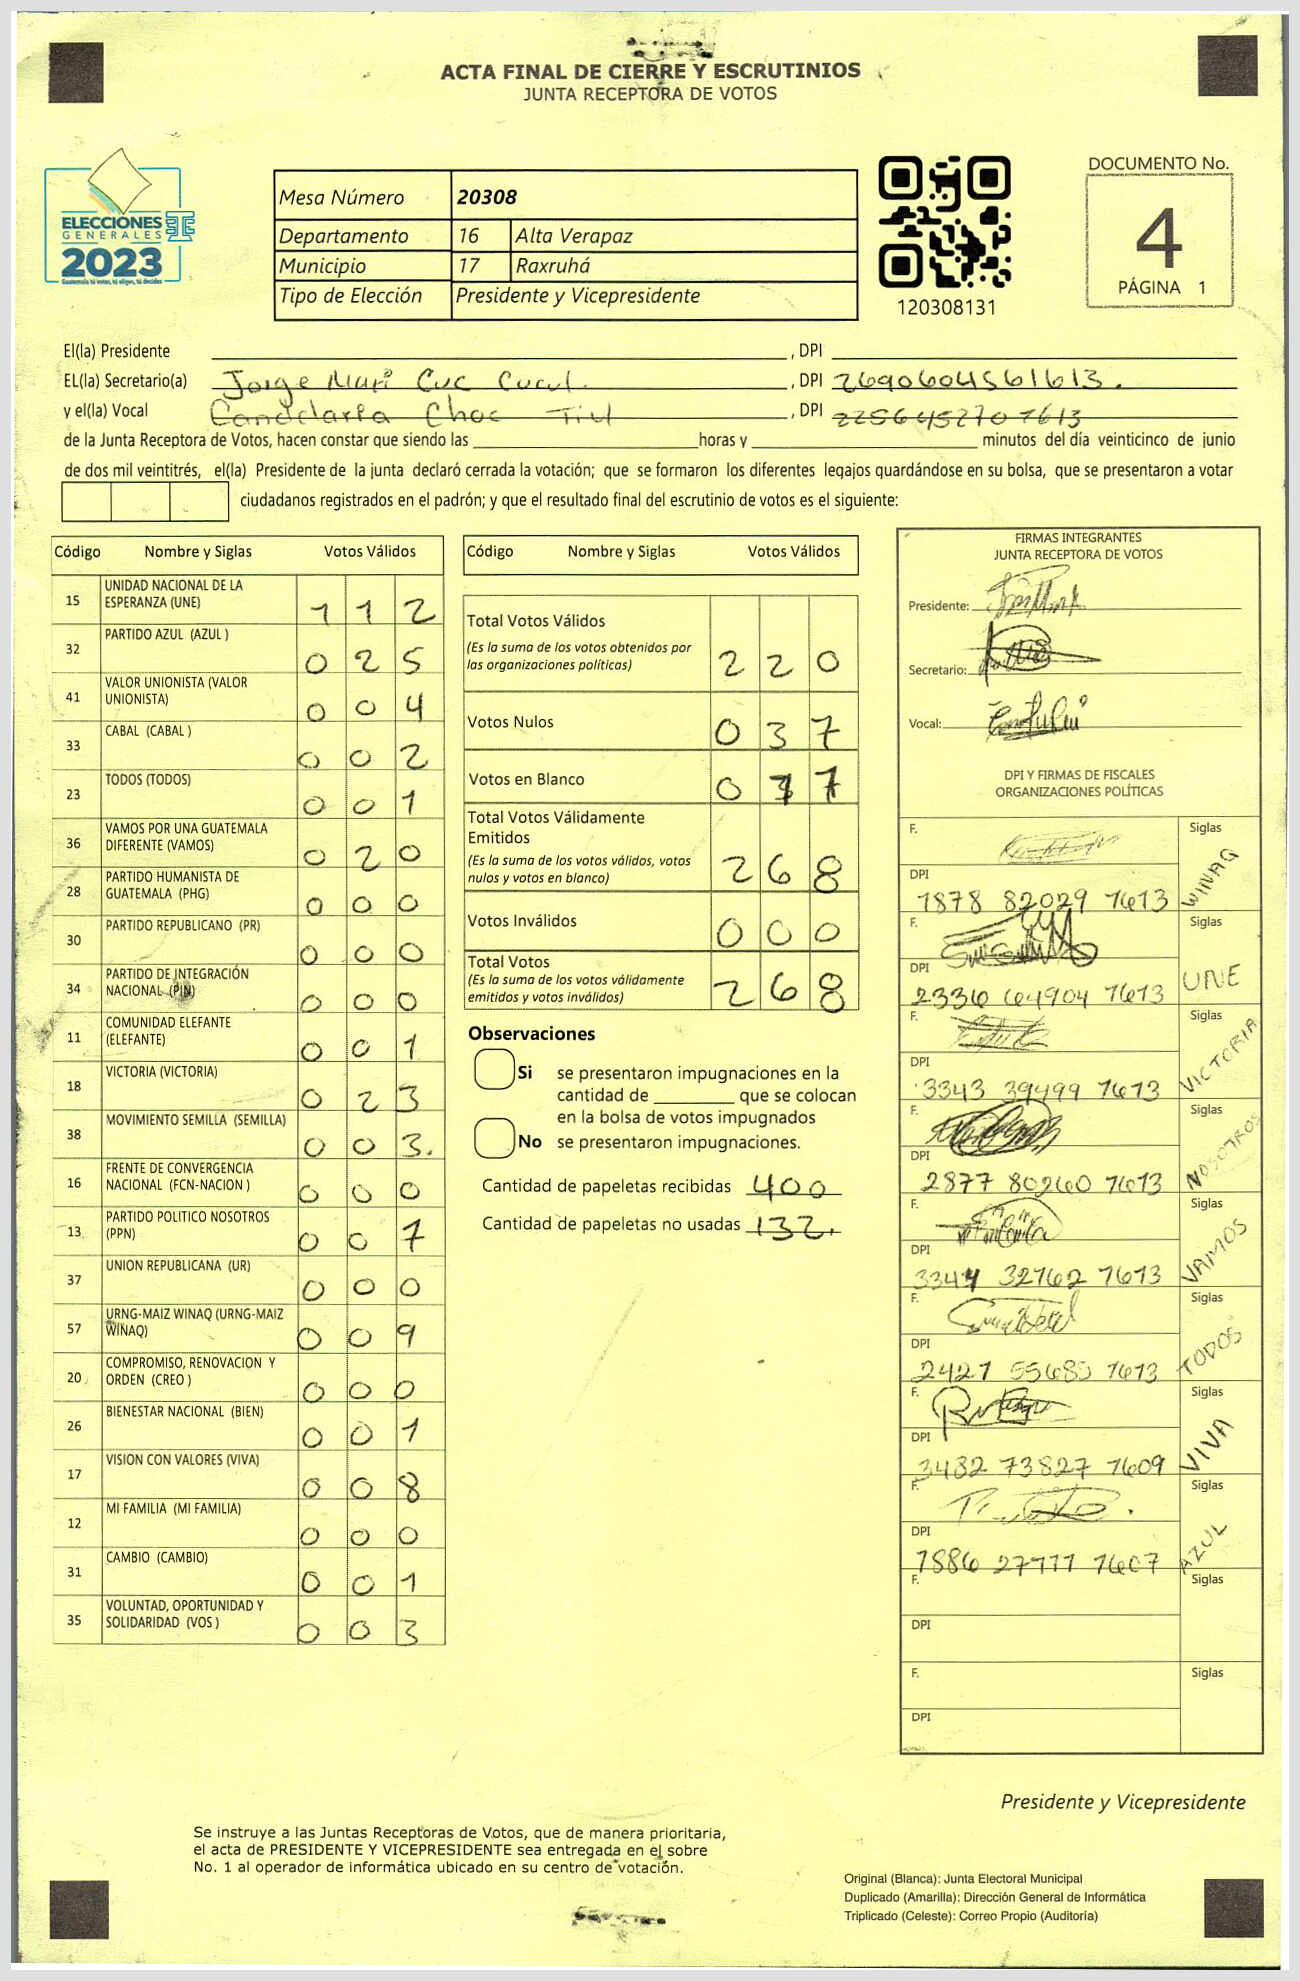 ACTA FINAL DE CIERRE Y ESCRUTINIOS
JUNTA RECEPTORA DE VOTOS
ELECCIONES
GENERALES
2023
Guatemala tú votas, tú eliges, tú decides
Mesa Número 20308
Departamento 16 Alta Verapaz
Municipio 17 Raxruhá
Tipo de Elección Presidente y Vicepresidente
120308131
DOCUMENTO No.
4
PÁGINA 1
El(la) Presidente , DPI
EL(la) Secretario(a) Jorge Mari Cuc Cucul. , DPI 2690604561613.
y el(la) Vocal Candelaria Choc Tiul , DPI 2256452701613
de la Junta Receptora de Votos, hacen constar que siendo las horas y minutos del día veinticinco de junio
de dos mil veintitrés, el(la) Presidente de la junta declaró cerrada la votación; que se formaron los diferentes legajos quardándose en su bolsa, que se presentaron a votar
ciudadanos registrados en el padrón; y que el resultado final del escrutinio de votos es el siguiente:
Código Nombre y Siglas Votos Válidos
15 UNIDAD NACIONAL DE LA
ESPERANZA (UNE) 1 1 2
32 PARTIDO AZUL (AZUL ) 0 2 5
41 VALOR UNIONISTA (VALOR
UNIONISTA) 0 0 4
33 CABAL (CABAL ) 0 0 2
23 TODOS (TODOS) 0 0 1
36 VAMOS POR UNA GUATEMALA
DIFERENTE (VAMOS) 0 2 0
28 PARTIDO HUMANISTA DE
GUATEMALA (PHG) 0 0 0
30 PARTIDO REPUBLICANO (PR) 0 0 0
34 PARTIDO DE INTEGRACIÓN
NACIONAL (PIN) 0 0 0
11 COMUNIDAD ELEFANTE
(ELEFANTE) 0 0 1
18 VICTORIA (VICTORIA) 0 2 3
38 MOVIMIENTO SEMILLA (SEMILLA) 0 0 3.
16 FRENTE DE CONVERGENCIA
NACIONAL (FCN-NACION ) 0 0 0
13 PARTIDO POLITICO NOSOTROS
(PPN) 0 0 7
37 UNION REPUBLICANA (UR) 0 0 0
57 URNG-MAIZ WINAQ (URNG-MAIZ
WINAQ) 0 0 9
20 COMPROMISO, RENOVACION Y
ORDEN (CREO ) 0 0 0
26 BIENESTAR NACIONAL (BIEN) 0 0 1
17 VISION CON VALORES (VIVA) 0 0 8
12 MI FAMILIA (MI FAMILIA) 0 0 0
31 CAMBIO (CAMBIO) 0 0 1
35 VOLUNTAD, OPORTUNIDAD Y
SOLIDARIDAD (VOS ) 0 0 3
Código Nombre y Siglas Votos Válidos
Total Votos Válidos
(Es la suma de los votos obtenidos por
las organizaciones políticas) 2 2 0
Votos Nulos 0 3 7
Votos en Blanco 0
Total Votos Válidamente
Emitidos
(Es la suma de los votos válidos, votos
nulos y votos en blanco) 2 6 8
Votos Inválidos 0 0 0
Total Votos
(Es la suma de los votos válidamente
emitidos y votos inválidos) 2 6 8
Observaciones
Si se presentaron impugnaciones en la
cantidad de que se colocan
en la bolsa de votos impugnados
No se presentaron impugnaciones.
Cantidad de papeletas recibidas 400
Cantidad de papeletas no usadas 132.
FIRMAS INTEGRANTES
JUNTA RECEPTORA DE VOTOS
Presidente:
Secretario:
Vocal:
DPI Y FIRMAS DE FISCALES
ORGANIZACIONES POLÍTICAS
F. Siglas
WINAQ
DPI
1878 82029 1613
F. Siglas
UNE
DPI
2336 64904 1613
F. Siglas
VICTORIA
DPI
3343 39499 1613
F. Siglas
NOSOTROS
DPI
2877 80260 1613
F. Siglas
VAMOS
DPI
3344 32762 1613
F. Siglas
TODOS
DPI
2421 55685 1613
F. Siglas
VIVA
DPI
3482 73827 1609
F. Siglas
AZUL
DPI
1886 27777 1607
F. Siglas
DPI
F. Siglas
DPI
Presidente y Vicepresidente
Se instruye a las Juntas Receptoras de Votos, que de manera prioritaria,
el acta de PRESIDENTE Y VICEPRESIDENTE sea entregada en el sobre
No. 1 al operador de informática ubicado en su centro de votación.
Original (Blanca): Junta Electoral Municipal
Duplicado (Amarilla): Dirección General de Informática
Triplicado (Celeste): Correo Propio (Auditoría)